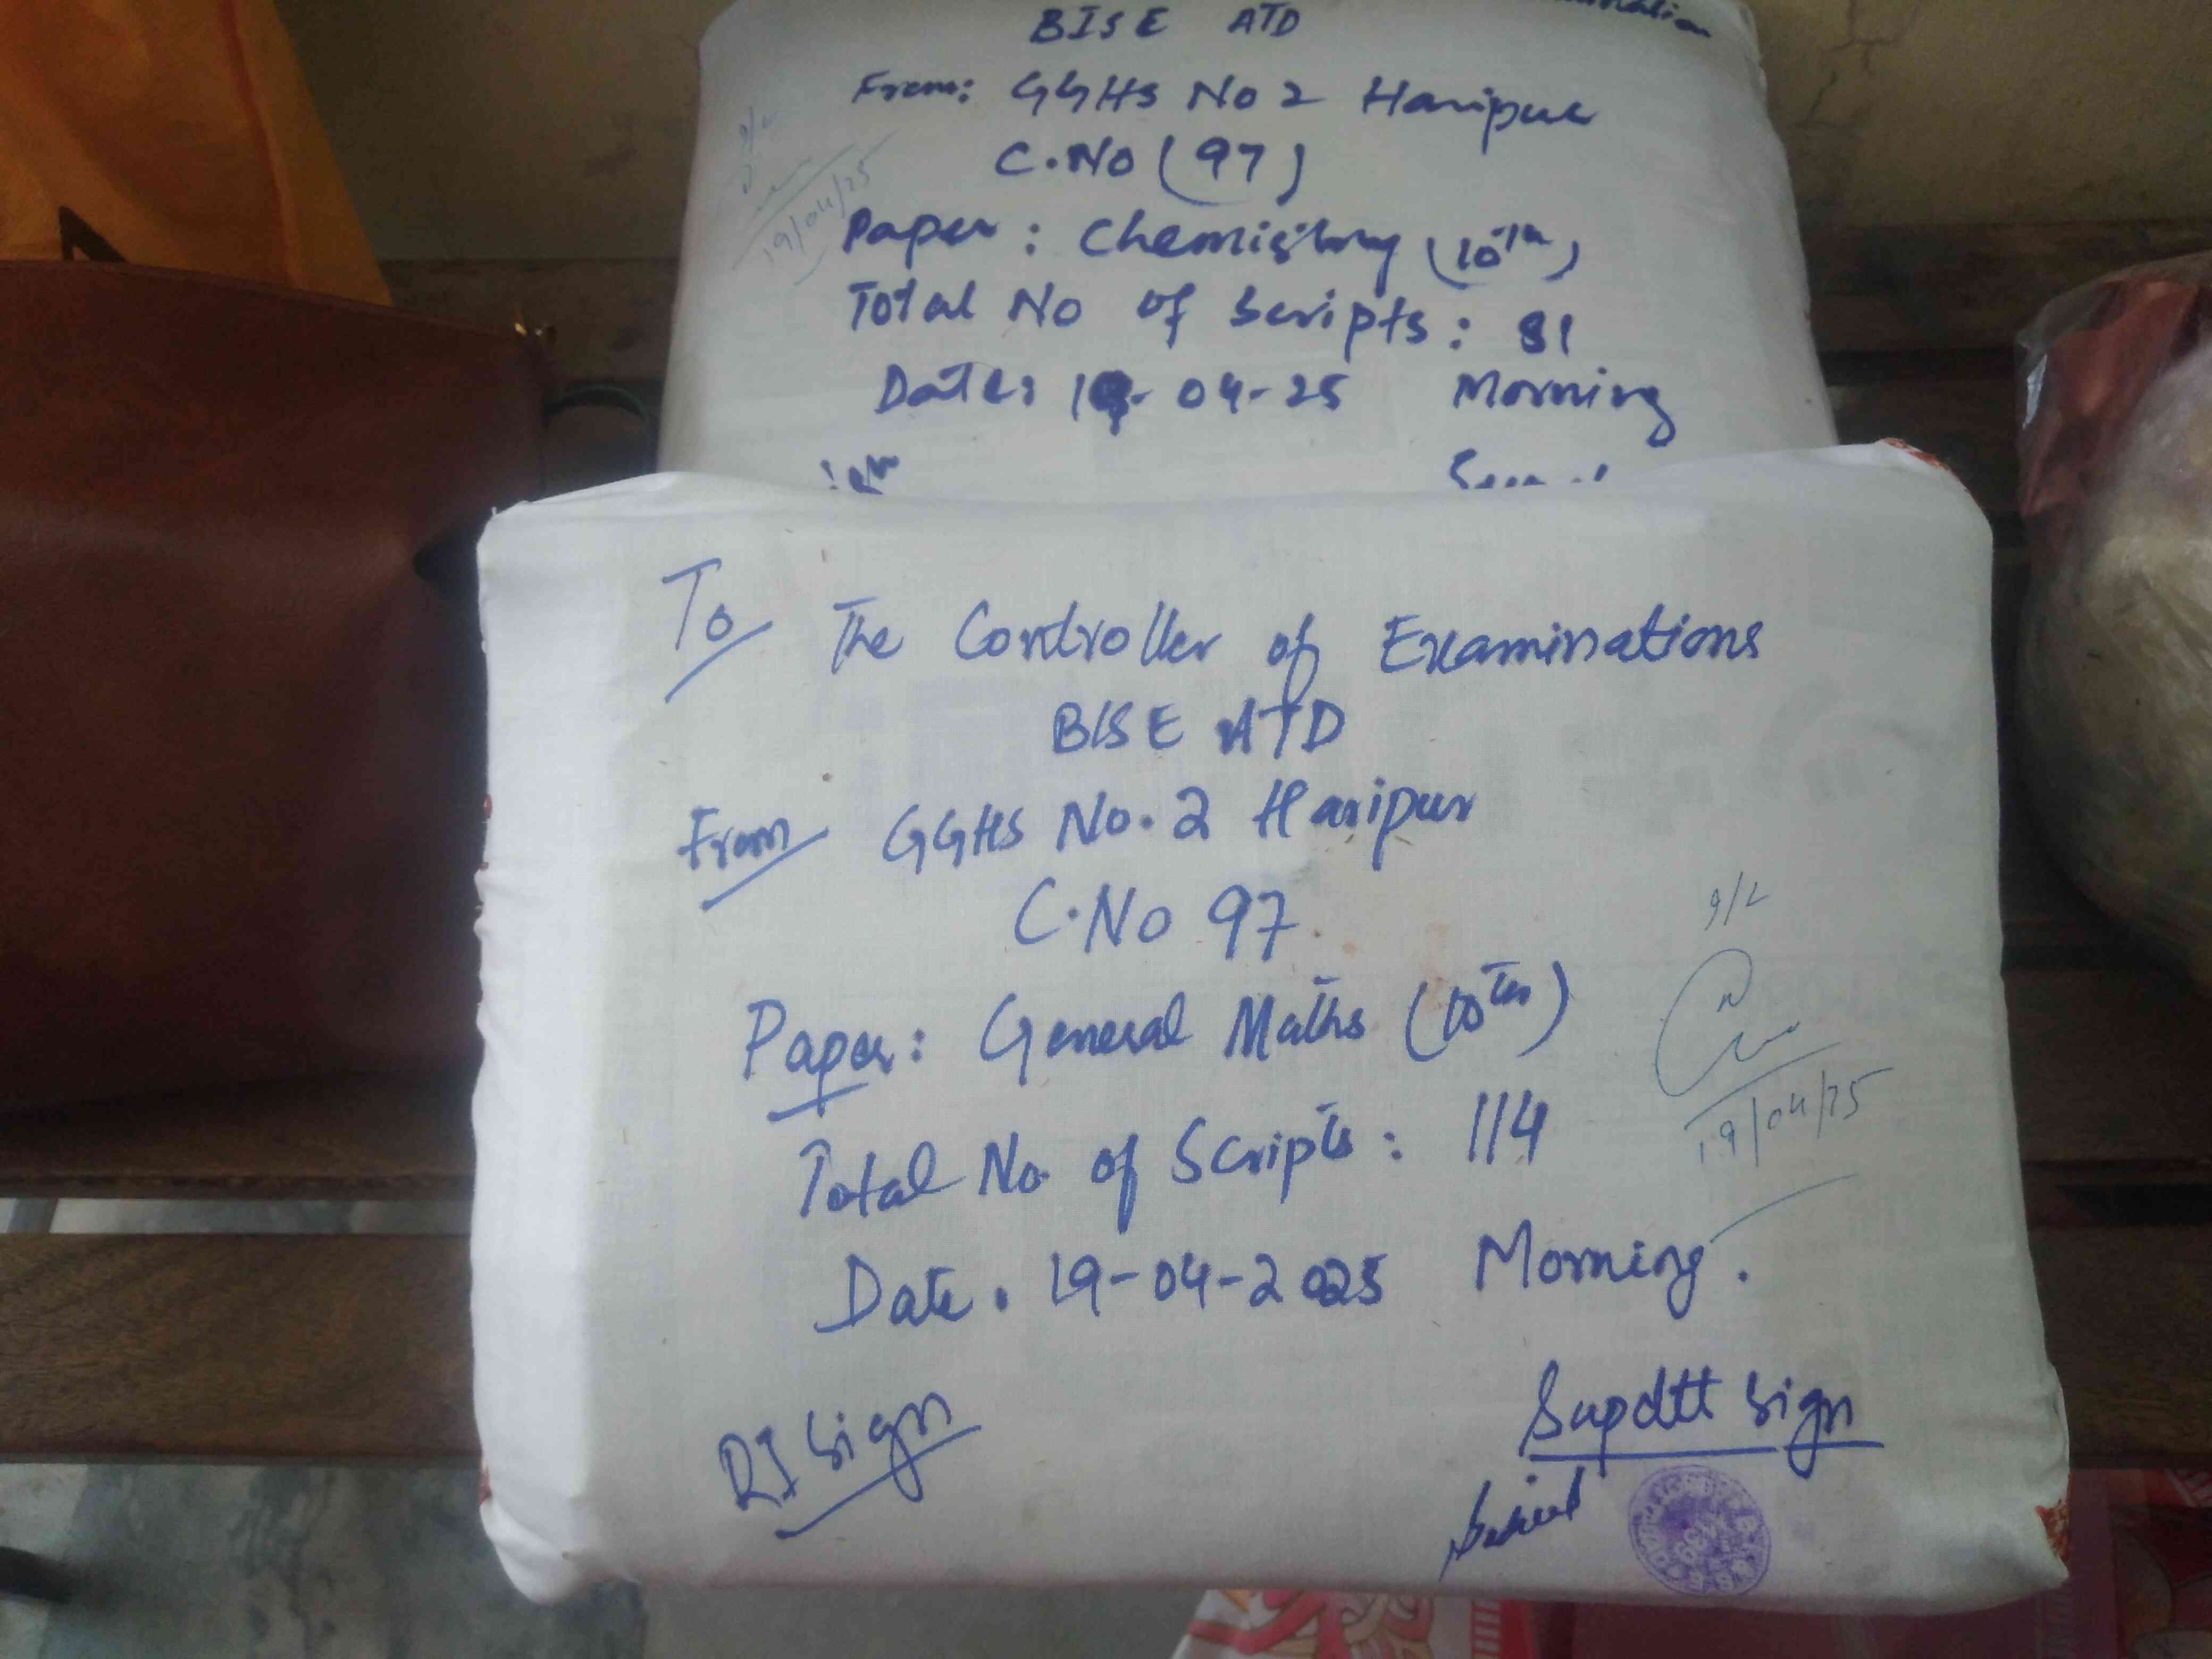 BISE ATD
From: GGHS No 2 Haripur
C.No (97)
Paper: Chemistry (10th)
Total No of Scripts: 81
Date: 19-04-25 Morning
19/04/25
To The Controller of Examinations
BISE ATD
From GGHS No.2 Haripur
C.No 97
Paper: General Maths (10th)
Total No. of Scripts: 114
Date. 19-04-2025 Morning.
9/2
19/04/25
RI Sign
Supdtt Sign